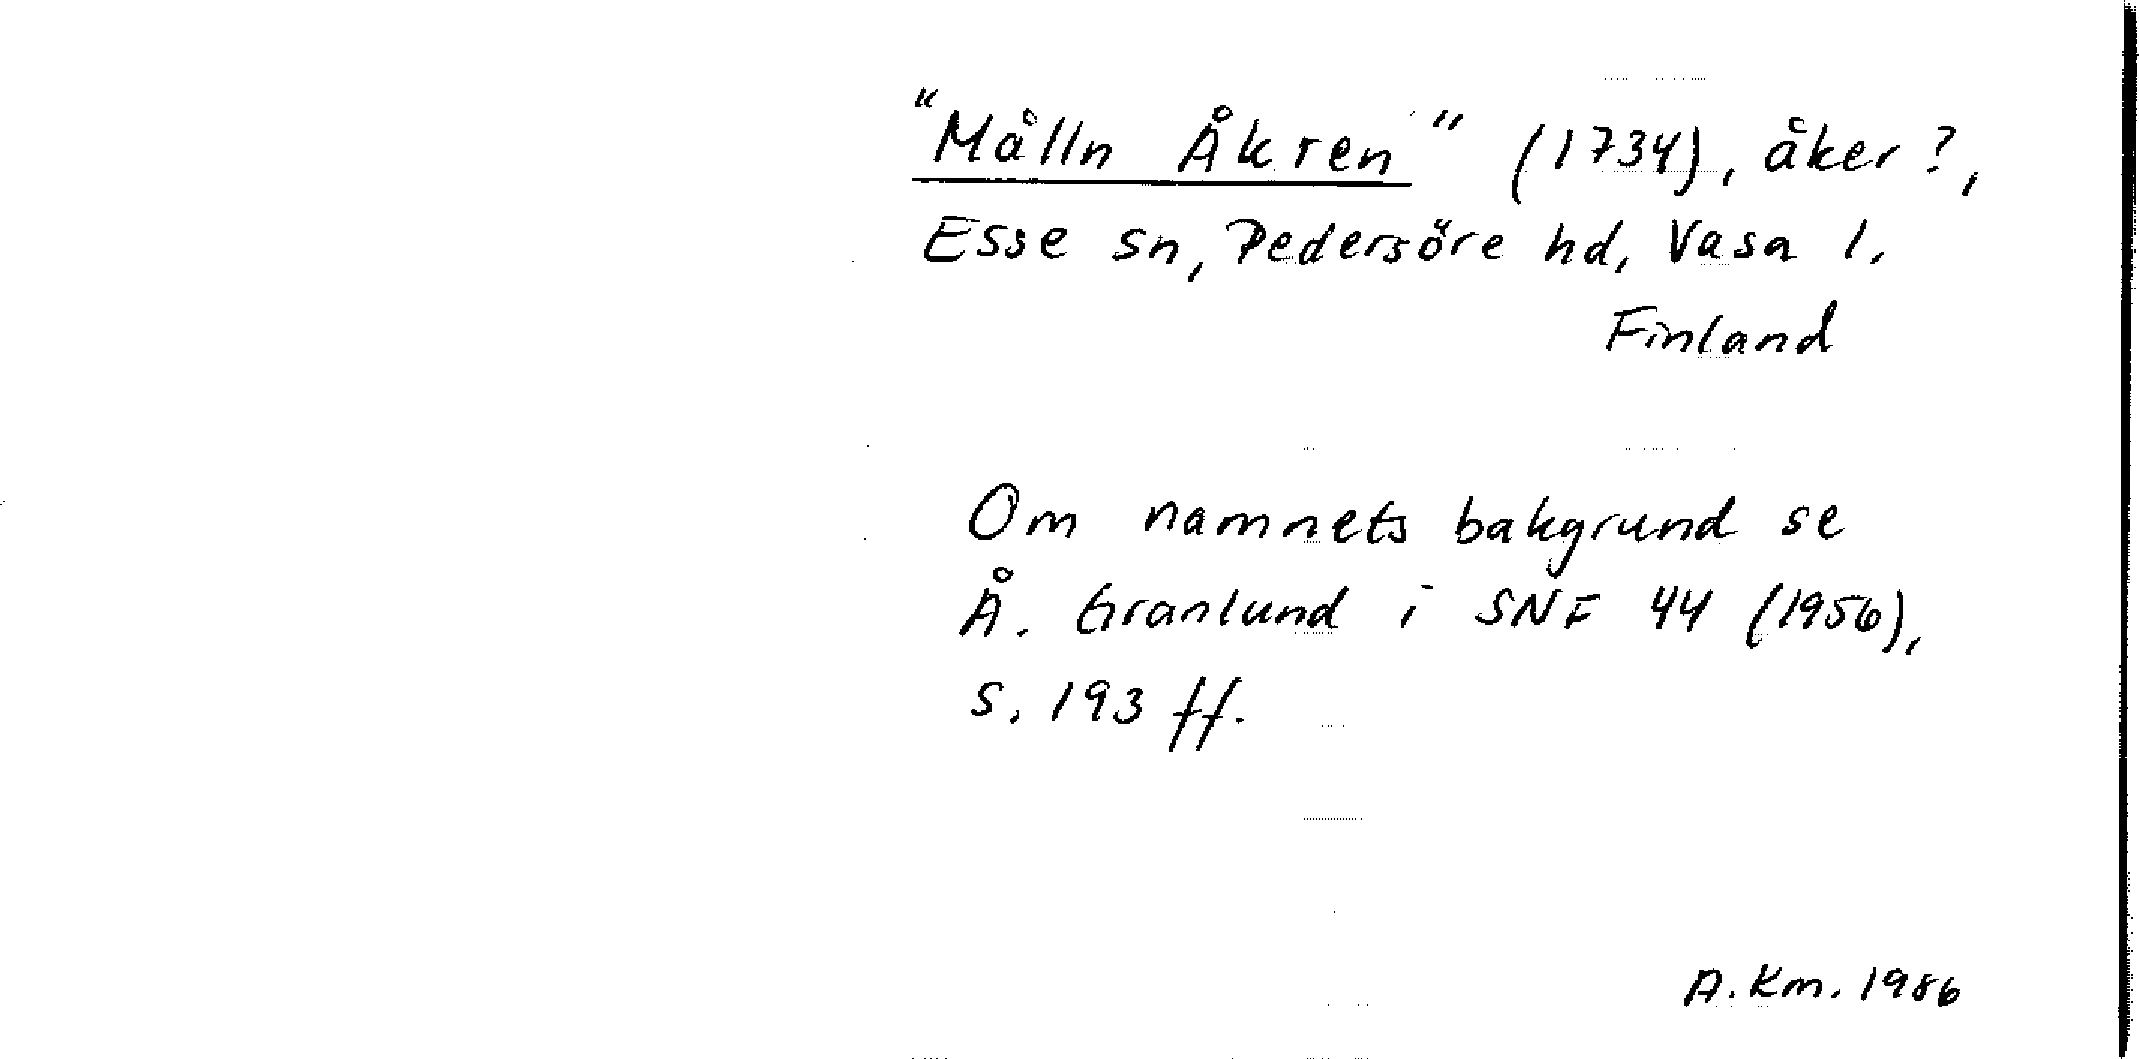 "Målln Åkren" (1734), åker?,
Esse sn, Pedersöre hd, Vasa l.
Finland
Om namnets bakgrund se
Å. Granlund i SNF 44 (1956),
s. 193 ff.
A. Km. 1986